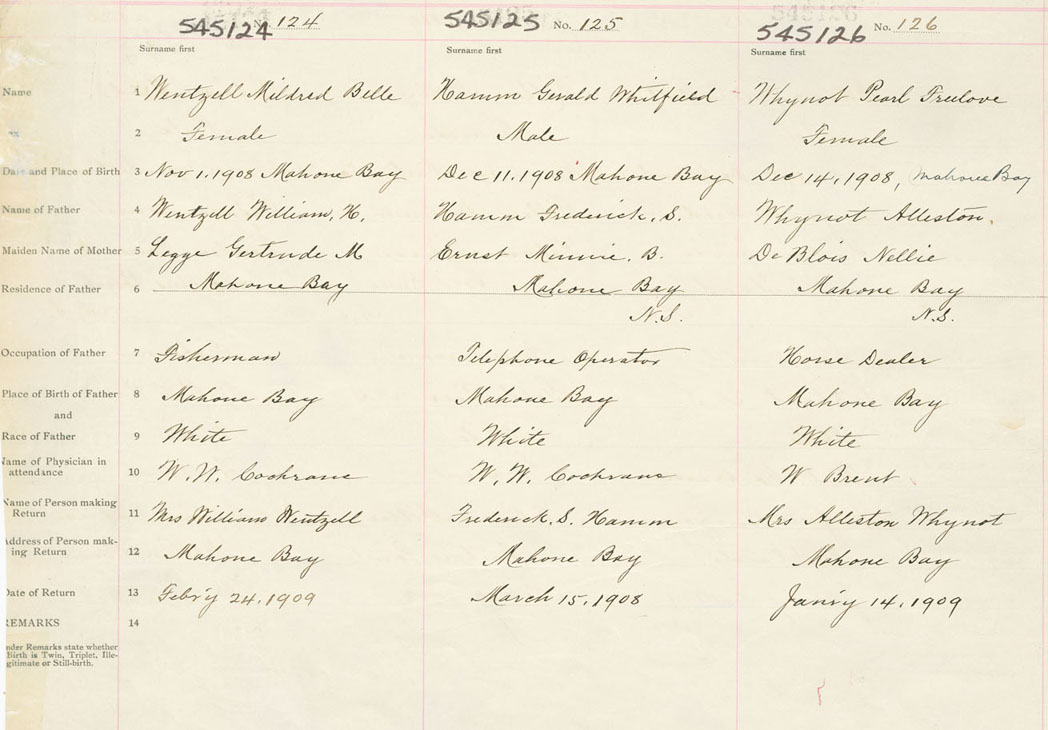 545124 No. 124 545125 No. 125 545126 No. 126
Surname first Surname first Surname first
Name 1 Wentzell Mildred Belle Hamm Gerald Whitfield Whynot Pearl Freelove
2 Female Male Female
Date and Place of Birth 3 Nov 1. 1908 Mahone Bay Dec 11. 1908 Mahone Bay Dec 14, 1908, Mahone Bay
Name of Father 4 Wentzell William, H. Hamm Frederick, S. Whynot Alleston.
Maiden Name of Mother 5 Legge Gertrude M Ernst Minnie. B. De Blois Nellie
Residence of Father 6 Mahone Bay Mahone Bay Mahone Bay
N.S. N.S.
Occupation of Father 7 Fisherman Telephone Operator Horse Dealer
Place of Birth of Father 8 Mahone Bay Mahone Bay Mahone Bay
and
Race of Father 9 White White White
Name of Physician in
attendance 10 W. W. Cochrane W. W. Cochrane W Brent
Name of Person making
Return 11 Mrs William Wentzell Frederick. S. Hamm Mrs Alleston Whynot
Address of Person mak-
ing Return 12 Mahone Bay Mahone Bay Mahone Bay
Date of Return 13 Feb'ry 24. 1909 March 15. 1908 Jan'ry 14. 1909
REMARKS 14
Under Remarks state whether
Birth is Twin, Triplet, Ille-
gitimate or Still-birth.